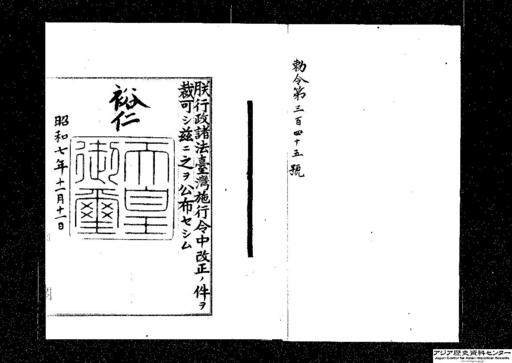 勅令第三百四十五號
朕行政諸法臺灣施行令中改正ノ件ヲ
裁可シ茲ニ之ヲ公布セシム
裕仁
天皇御璽
昭和七年十一月十一日
アジア歴史資料センター
Japan Center for Asian Historical Records